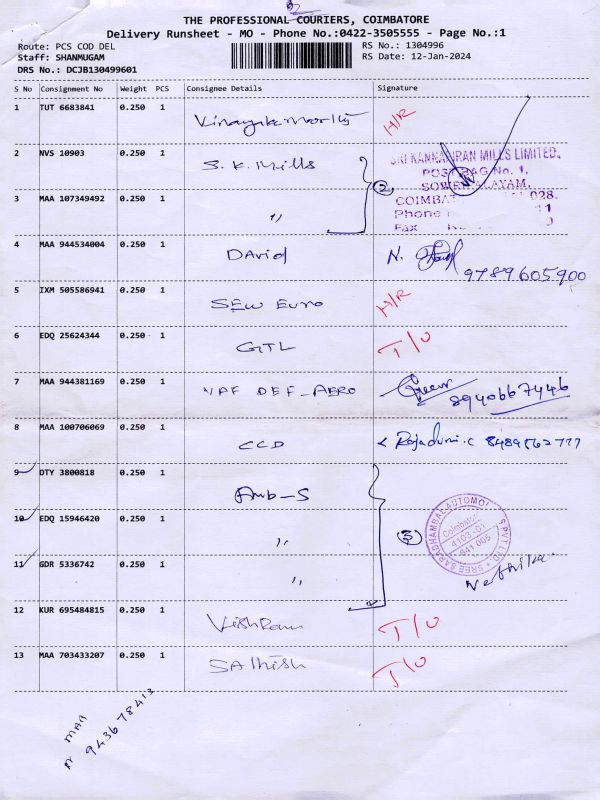 THE PROFESSIONAL COURIERS, COIMBATORE
Delivery Runsheet - MO - Phone No.:0422-3505555 - Page No.:1
Route: PCS COD DEL RS No.: 1304996
Staff: SHANMUGAM RS Date: 12-Jan-2024
DRS No.: DCJB130499601
S No Consignment No Weight PCS Consignee Details Signature
1 TUT 6683841 0.250 1 H/R
2 NVS 10903 0.250 1 S.K. Mills SRI KANNAPIRAN MILLS LIMITED.
POST BAG No. 1,
SOWRIPALAYAM,
3 MAA 107349492 0.250 1 " 2 COIMBAT 028.
Phone
Fax
4 MAA 944534004 0.250 1 David N. 9789605900
5 IXM 505586941 0.250 1 SEW Euro H/R
6 EDQ 25624344 0.250 1 GTL T/O
7 MAA 944381169 0.250 1 DEF-AERO 8940667446
8 MAA 100706069 0.250 1 CCD
9 DTY 3800818 0.250 1 Amb-S
10 EDQ 15946420 0.250 1 " 3 SREE SARADHAMBAL AUTOMO S PVT LTD
Coimbatore
4103-01
641 005
11 GDR 5336742 0.250 1 "
12 KUR 695484815 0.250 1 T/O
13 MAA 703433207 0.250 1 Sathish T/O
MAA
943678413